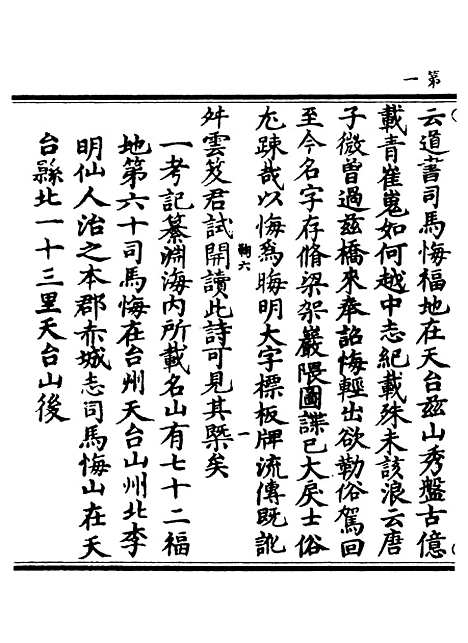 第一
云道書司馬悔福地在天台玆山秀盤古億
載青崔嵬如何越中志紀載殊未該浪云唐
子微曾過玆橋來奉詔悔輕出欲勒俗駕回
至今名字存脩梁架巖隈圖諜已大戾士俗
尤踈哉以悔為晦明大字標板牌流傳既訛
鞠六
一
舛雲笈君試開讀此詩可見其槩矣
一考記纂淵海內所載名山有七十二福
地第六十司馬悔在台州天台山州北李
明仙人治之本郡赤城志司馬悔山在天
台縣北一十三里天台山後